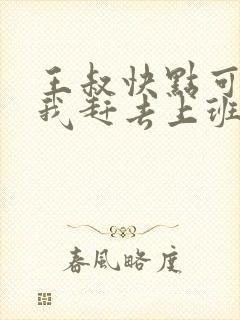 王叔快點可
我赶去上班
春風略度